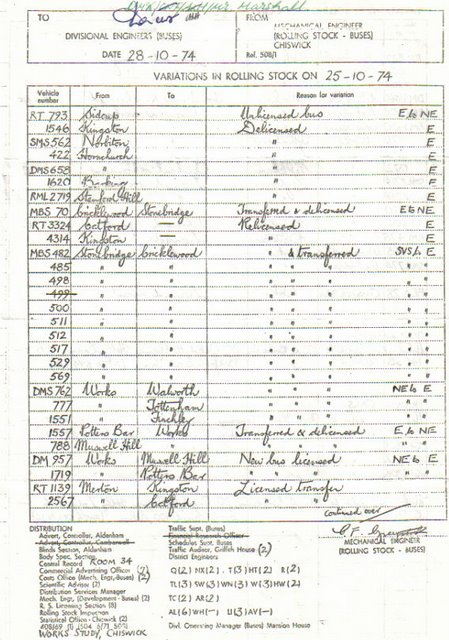 TO
FROM
DIVISIONAL ENGINEERS (BUSES)
MECHANICAL ENGINEER
(ROLLING STOCK - BUSES)
CHISWICK
DATE 28-10-74
Ref. 508/1
VARIATIONS IN ROLLING STOCK ON 25-10-74
Vehicle number From To Reason for variation
RT 793 Sidcup Unlicensed bus E to NE
1546 Kingston Delicensed E
SMS 562 Norbiton " E
422 Hornchurch " E
DMS 658 " " E
1620 Barking " E
RML 2719 Stamford Hill " E
MBS 70 Cricklewood Stonebridge Transferred & delicensed E to NE
RT 3324 Catford — Relicensed E
4314 Kingston — " E
MBS 482 Stonebridge Cricklewood " & transferred SVS to E
485 " " " " " " "
498 " " " " " " "
499 " " " " " " "
500 " " " " " " "
511 " " " " " " "
512 " " " " " " "
517 " " " " " " "
529 " " " " " " "
569 " " " " " " "
DMS 762 Works Walworth " " " NE to E
777 " Tottenham " " " " "
1551 " Finchley " " " " "
1557 Potters Bar Works Transferred & delicensed E to NE
788 Muswell Hill " " " " " "
DM 957 Works Muswell Hill New bus licensed NE to E
1719 " Potters Bar " " " " "
RT 1139 Merton Kingston Licensed transfer
2567 " Catford " "
continued over
DISTRIBUTION
Advert. Controller, Aldenham
Advert. Controller, Camberwell
Blinds Section, Aldenham
Body Spec. Section
Central Record ROOM 34
Commercial Advertising Officer
Costs Office (Mech. Engr. Buses) (2)
Scientific Advisor (2)
Distribution Services Manager
Mech. Engr. (Development - Buses) (2)
R. S. Licensing Section (8)
Rolling Stock Inspection
Statistical Office - Chiswick (2)
WORKS STUDY, CHISWICK
Traffic Supt. (Buses)
Financial Research Officer
Schedules Supt. Buses
Traffic Auditor, Griffith House (2)
District Engineers
Q(2) NX(2) T(3) HT(2) R(2)
TL(3) SW(3) WN(3) W(3) HW(2)
TC(2) AR(2)
AL(6) WH(-) U(3) AV(-)
Divl. Operating Manager (Buses) Mansion House
MECHANICAL ENGINEER
(ROLLING STOCK - BUSES)